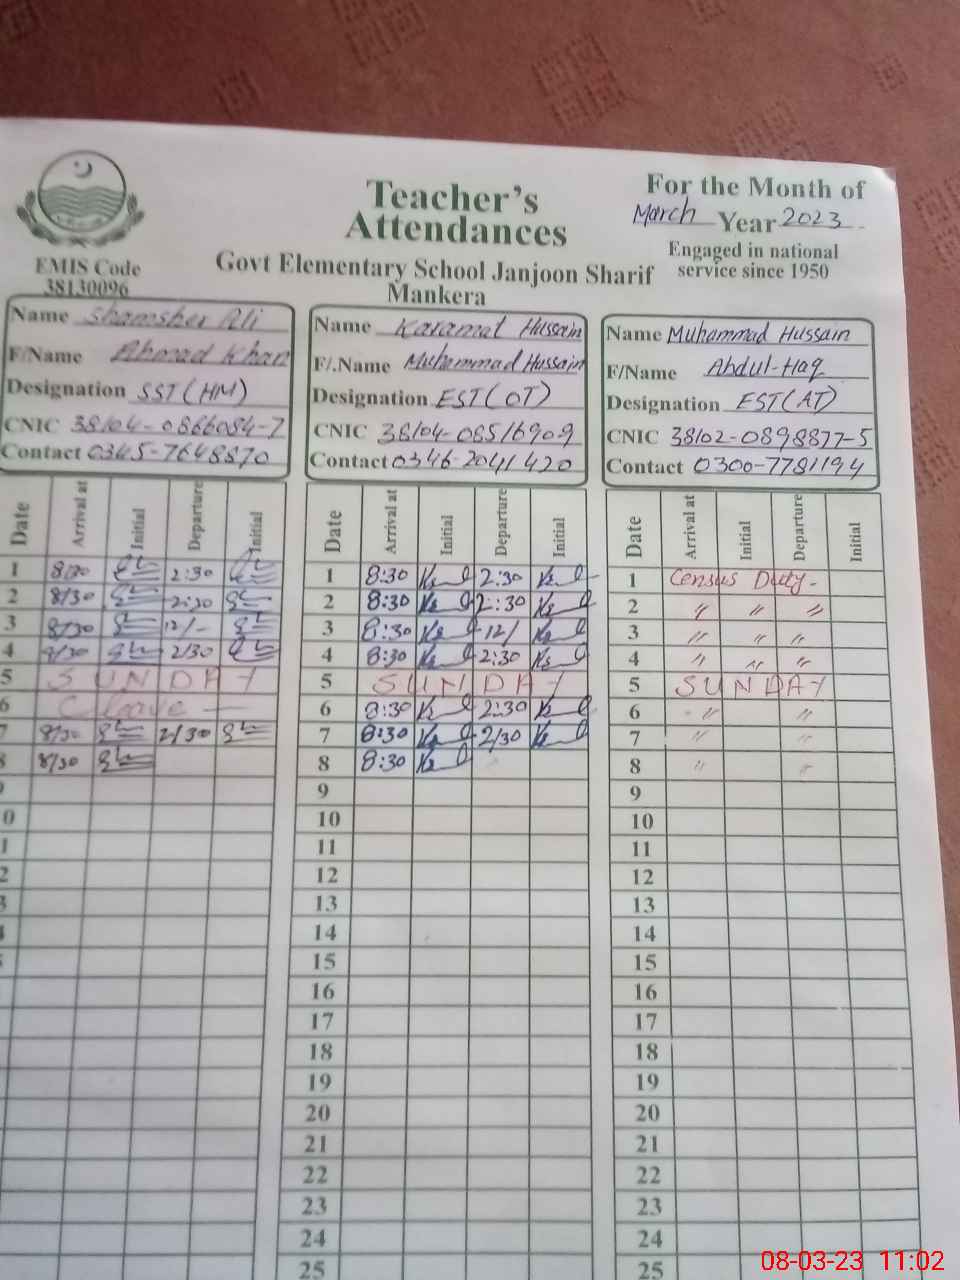 Teacher's
Attendances
For the Month of
March Year 2023
Engaged in national
service since 1950
EMIS Code
38130096
Govt Elementary School Janjoon Sharif
Mankera
Name Shamsher Ali
F/Name Ahmad Khan
Designation SST (HM)
CNIC 38104-0866084-7
Contact 0345-7648870
Name Karamat Hussain
F/.Name Muhammad Hussain
Designation EST (OT)
CNIC 38104-08516909
Contact 0346-2041420
Name Muhammad Hussain
F/Name Abdul-Haq
Designation EST (AT)
CNIC 38102-0898877-5
Contact 0300-7781194
Date Arrival at Initial Departure Initial
1 8/30 2:30
2 8/30 2:30
3 8/30 12/-
4 8/30 2/30
5 SUNDAY
6 C. leave
7 8/30 2/30
8 8/30
Date Arrival at Initial Departure Initial
1 8:30 2:30
2 8:30 2:30
3 8:30 12/
4 8:30 2:30
5 SUNDAY
6 8:30 2:30
7 8:30 2/30
8 8:30
9
10
11
12
13
14
15
16
17
18
19
20
21
22
23
24
25
Date Arrival at Initial Departure Initial
1 Census Duty-
2 〃 〃 〃
3 〃 〃 〃
4 〃 〃 〃
5 SUNDAY
6 〃 〃
7 〃 〃
8 〃 〃
9
10
11
12
13
14
15
16
17
18
19
20
21
22
23
24
25
08-03-23 11:02